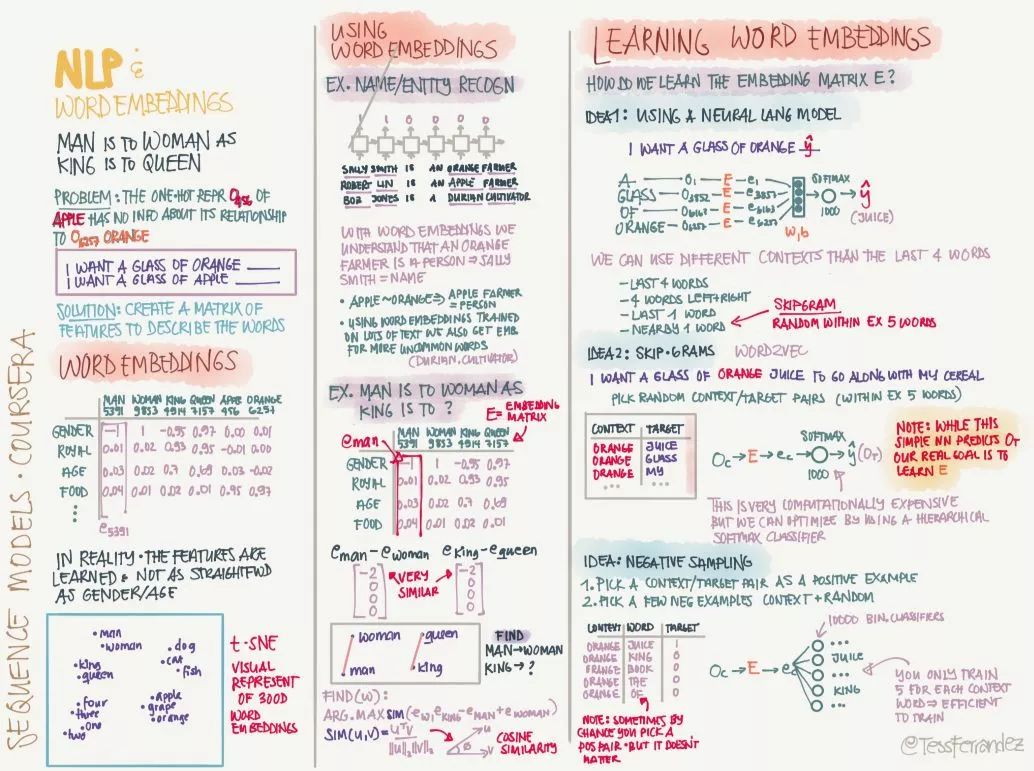 SEQUENCE MODELS · COURSERA
NLP &
WORD EMBEDDINGS
MAN IS TO WOMAN AS
KING IS TO QUEEN
PROBLEM: THE ONE-HOT REPR O456 OF
APPLE HAS NO INFO ABOUT ITS RELATIONSHIP
TO O6257 ORANGE
I WANT A GLASS OF ORANGE ____
I WANT A GLASS OF APPLE ____
SOLUTION: CREATE A MATRIX OF
FEATURES TO DESCRIBE THE WORDS
WORD EMBEDDINGS
MAN WOMAN KING QUEEN APPLE ORANGE
5391 9853 4914 7157 456 6257
GENDER -1 1 -0.95 0.97 0.00 0.01
ROYAL 0.01 0.02 0.93 0.95 -0.01 0.00
AGE 0.03 0.02 0.7 0.69 0.03 -0.02
FOOD 0.04 0.01 0.02 0.01 0.95 0.97
e5391
IN REALITY · THE FEATURES ARE
LEARNED & NOT AS STRAIGHTFWD
AS GENDER/AGE
man
woman
dog
cat
fish
king
queen
four
three
one
two
apple
grape
orange
t-SNE
VISUAL
REPRESENT
OF 300D
WORD
EMBEDDINGS
USING
WORD EMBEDDINGS
EX. NAME/ENTITY RECOGN
1 1 0 0 0 0
SALLY SMITH IS AN ORANGE FARMER
ROBERT LIN IS AN APPLE FARMER
BOB JONES IS A DURIAN CULTIVATOR
WITH WORD EMBEDDINGS WE
UNDERSTAND THAT AN ORANGE
FARMER IS A PERSON ⇒ SALLY
SMITH = NAME
• APPLE ~ ORANGE ⇒ APPLE FARMER
= PERSON
• USING WORD EMBEDDINGS TRAINED
ON LOTS OF TEXT WE ALSO GET EMB.
FOR MORE UNCOMMON WORDS
(DURIAN, CULTIVATOR)
EX. MAN IS TO WOMAN AS
KING IS TO ?
E = EMBEDDING
MATRIX
eman
MAN WOMAN KING QUEEN
5391 9853 4914 7157
GENDER -1 1 -0.95 0.97
ROYAL 0.01 0.02 0.93 0.95
AGE 0.03 0.02 0.7 0.69
FOOD 0.04 0.01 0.02 0.01
eman - ewoman eking - equeen
-2 -2
0 0
0 0
0 0
VERY
SIMILAR
woman
man
queen
king
FIND
MAN → WOMAN
KING → ?
FIND(W):
ARG.MAX SIM(ew, eking - eman + ewoman)
SIM(u,v) = uᵀv / ||u||₂||v||₂
u
ø
v
COSINE
SIMILARITY
LEARNING WORD EMBEDDINGS
HOW DO WE LEARN THE EMBEDDING MATRIX E?
IDEA1: USING A NEURAL LANG MODEL
I WANT A GLASS OF ORANGE ŷ
A O1 E e1
GLASS O3852 E e3852
OF O6163 E e6163
ORANGE O6257 E e6257
w,b
SOFTMAX
1000
ŷ
(JUICE)
WE CAN USE DIFFERENT CONTEXTS THAN THE LAST 4 WORDS
- LAST 4 WORDS
- 4 WORDS LEFT+RIGHT
- LAST 1 WORD
- NEARBY 1 WORD
SKIPGRAM
RANDOM WITHIN EX 5 WORDS
IDEA2: SKIP-GRAMS WORD2VEC
I WANT A GLASS OF ORANGE JUICE TO GO ALONG WITH MY CEREAL
PICK RANDOM CONTEXT/TARGET PAIRS (WITHIN EX 5 WORDS)
CONTEXT TARGET
ORANGE JUICE
ORANGE GLASS
ORANGE MY
... ...
Oc → E → ec → SOFTMAX 1000 → ŷ (OT)
NOTE: WHILE THIS
SIMPLE NN PREDICTS OT
OUR REAL GOAL IS TO
LEARN E
THIS IS VERY COMPUTATIONALLY EXPENSIVE
BUT WE CAN OPTIMIZE BY USING A HIERARCHICAL
SOFTMAX CLASSIFIER
IDEA: NEGATIVE SAMPLING
1. PICK A CONTEXT/TARGET PAIR AS A POSITIVE EXAMPLE
2. PICK A FEW NEG EXAMPLES CONTEXT + RANDOM
CONTEXT WORD TARGET
ORANGE JUICE 1
ORANGE KING 0
ORANGE BOOK 0
ORANGE THE 0
ORANGE OF 0
NOTE: SOMETIMES BY
CHANCE YOU PICK A
POS PAIR · BUT IT DOESN'T
MATTER
Oc → E → ec
10000 BIN. CLASSIFIERS
...
JUICE
...
KING
YOU ONLY TRAIN
5 FOR EACH CONTEXT
WORD ⇒ EFFICIENT
TO TRAIN
@TessFerrandez